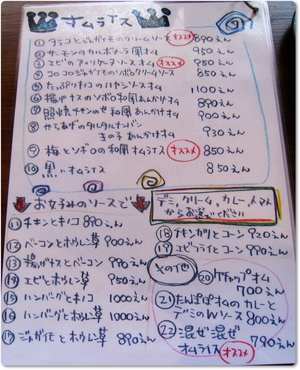 オムライス
① タラコとジャガイモのクリームソース オススメ 890えん
② サーモンのカルボナーラ風オム 950えん
③ エビのアメリケーヌソースオム オススメ 950えん
④ コロコロジャガイモのソボロクリームソース 850えん
⑤ たっぷりキノコのハヤシソースオム 1100えん
⑥ 揚げナスのソボロ和風あんかけオム 890えん
⑦ 照焼チキンのせ和風あんかけオム 900えん
⑧ からあげのタルタルナンバン
きの子あんかけオム 930えん
⑨ 梅とソボロの和風オムライス オススメ 850えん
⑩ 黒いオムライス 850えん
お好みのソースで
デミ、クリーム、カレー、トマト
からお選びください
⑪ チキンとキノコ 890えん
⑫ ベーコンとホウレン草 900えん
⑬ 揚げナスとベーコン 890えん
⑭ エビとホウレン草 950えん
⑮ ハンバーグとキノコ 1000えん
⑯ ハンバーグとホウレン草 1000えん
⑰ ジャガイモとホウレン草 890えん
⑱ メンチカツとコーン 920えん
⑲ エビフライとコーン 990えん
その他
⑳ ケチャップオム
700えん
㉑ たんぽぽオムのカレーと
デミのWソース 800えん
㉒ 混ぜ混ぜ 790えん
オムライス オススメ